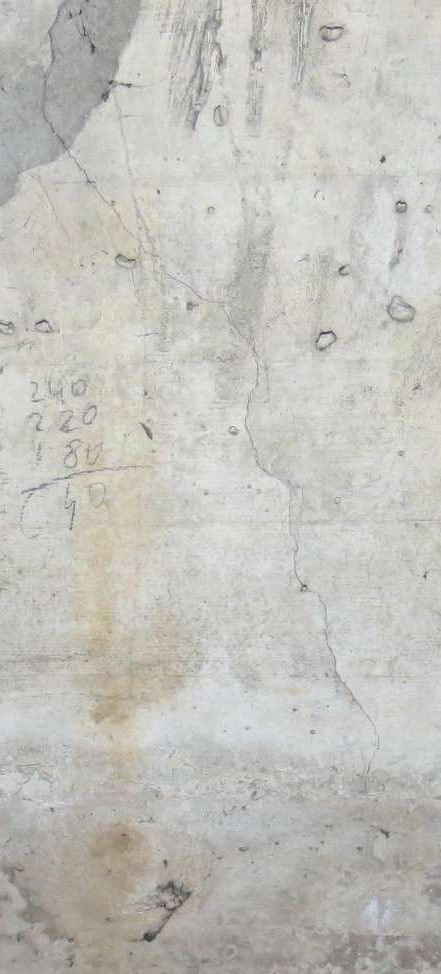 240
220
180
640